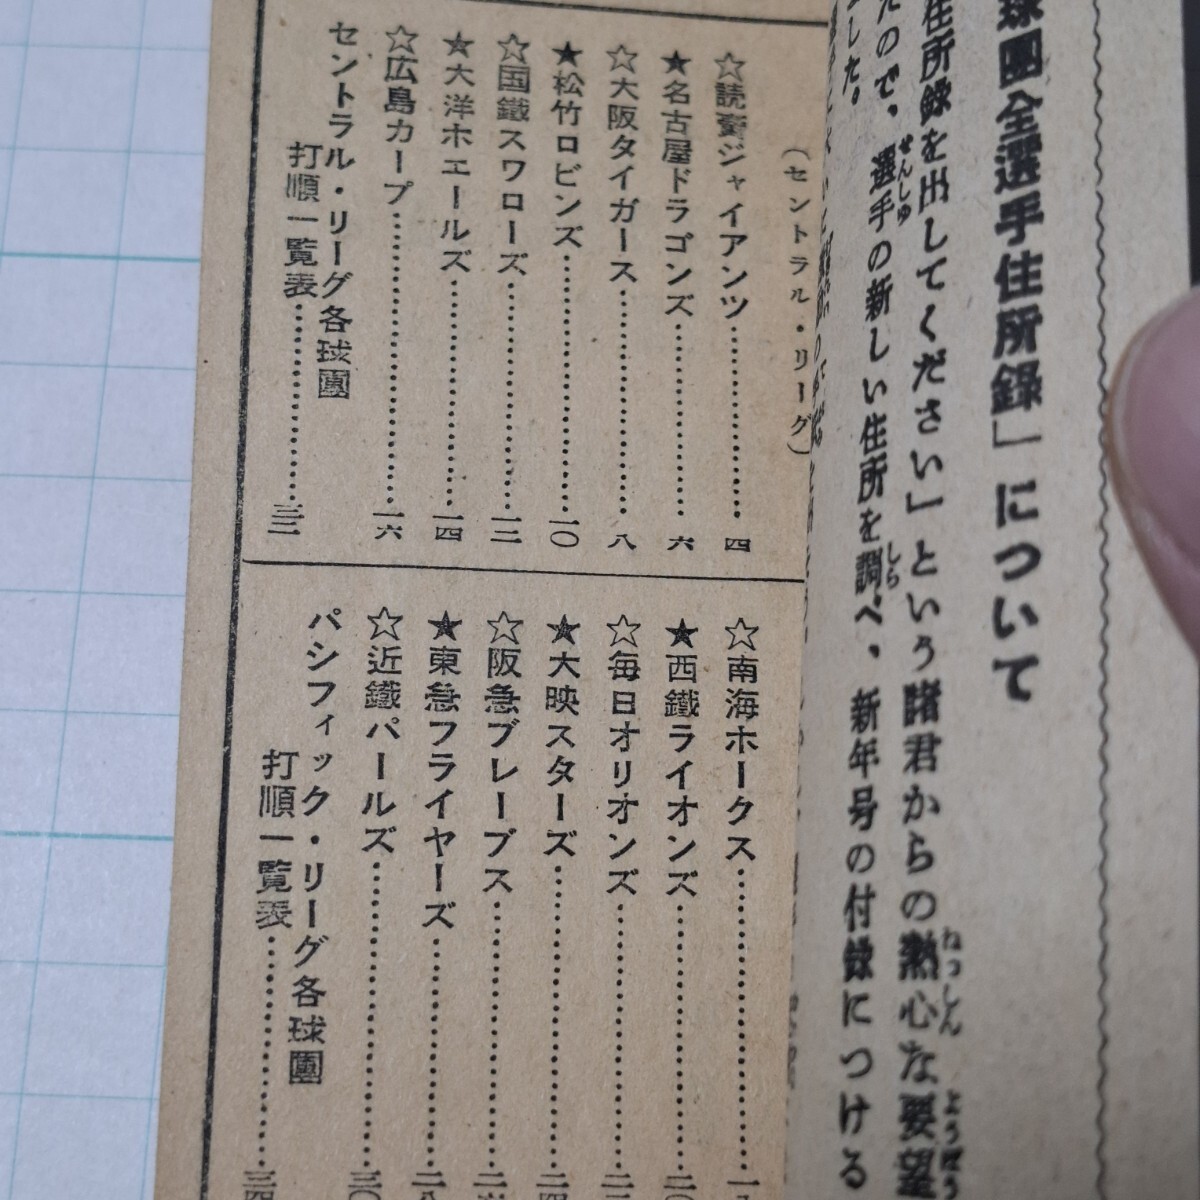 球團全選手住所錄」について
住所録を出してください」という諸君からの熱心な要望
たので、選手の新しい住所を調べ、新年号の付録につける
した。
(セントラル・リーグ)
☆読賣ジャイアンツ…………四
★名古屋ドラゴンズ…………六
☆大阪タイガース…………八
★松竹ロビンズ…………一〇
☆国鐵スワローズ…………一二
★大洋ホエールズ…………一四
☆広島カープ…………一六
セントラル・リーグ各球團
打順一覧表…………三二
☆南海ホークス…………
★西鐵ライオンズ…………
☆毎日オリオンズ…………
★大映スターズ…………
☆阪急ブレーブス…………
★東急フライヤーズ…………二八
☆近鐵パールズ…………三〇
パシフィック・リーグ各球團
打順一覧表…………三四